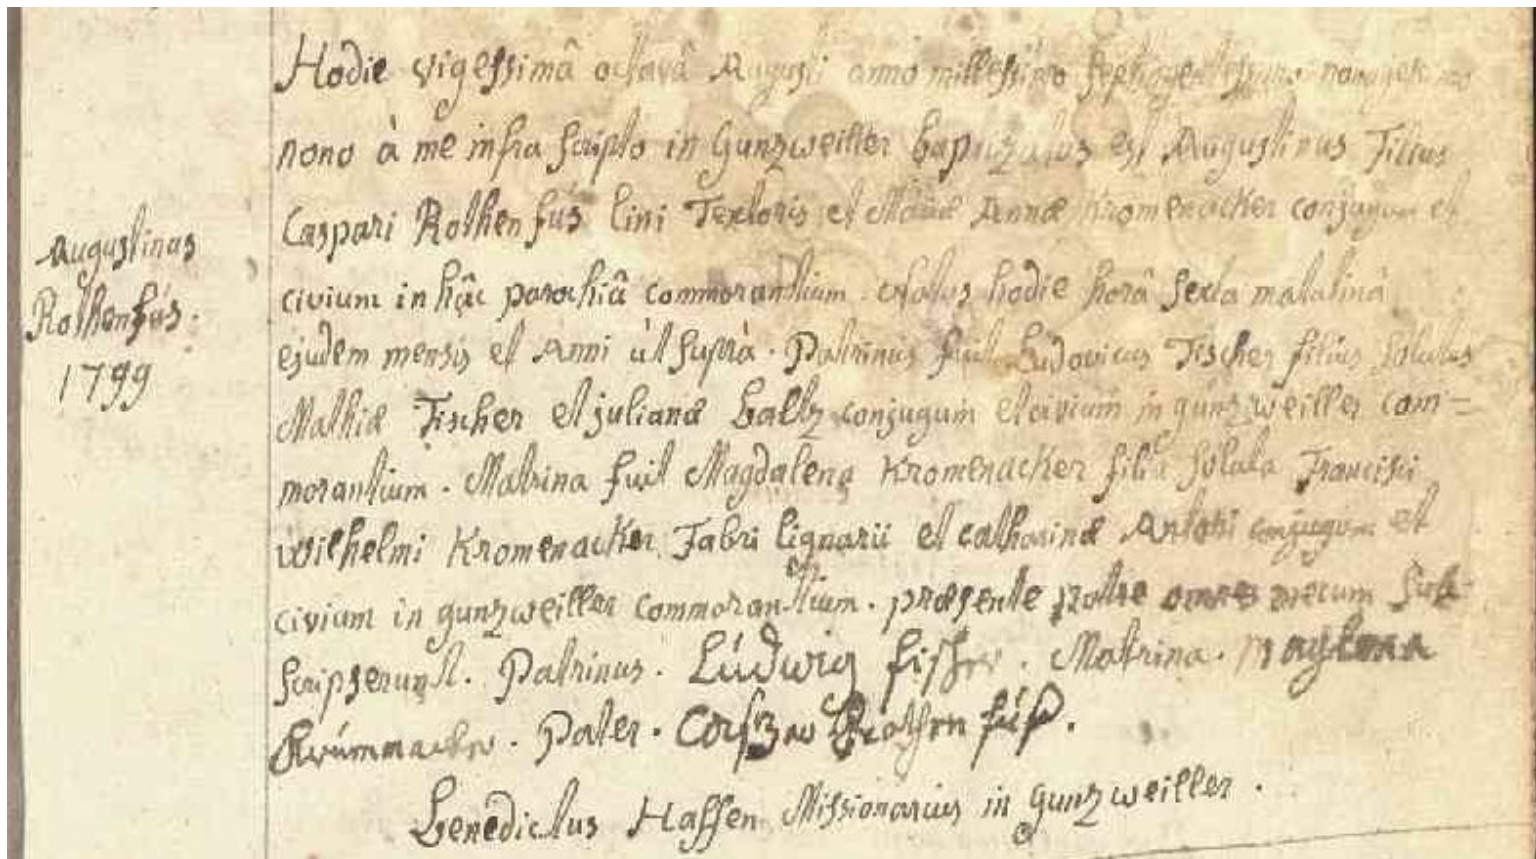 Hodie vigessimâ octavâ Augusti anno millessimo septingentessimo nonagessimo
nono à me infra scripto in Gunzweiller baptizatus est Augustinus Filius
Augustinus
Rothenfús.
1799
Caspari Rothenfús lini Textoris et Mariæ Annæ Kromenacker conjugum et
civium in hâc parochiâ commorantium. Natus hodie horâ sexta matutinâ
ejusdem mensis et Anni ùt suprà. Patrinus fuit Ludovicus Fischer filius solutus
Mathiæ Fischer et julianæ Baltz conjugum et civium in gunzweiller com=
morantium. Matrina fuit Magdalena Kromenacker filia soluta Francisci
Wilhelmi Kromenacker Fabri lignarii et catharinæ Antoni conjugum et
civium in gunzweiller commorantium. et præsente patre omnes mecum sub-
scripserunt. Patrinus. Lúdwig fischer. Matrina. maglena
Krúmmacker. Pater. Casper Rothenfúß.
Benedictus Hassen Missionarius in gunzweiller.